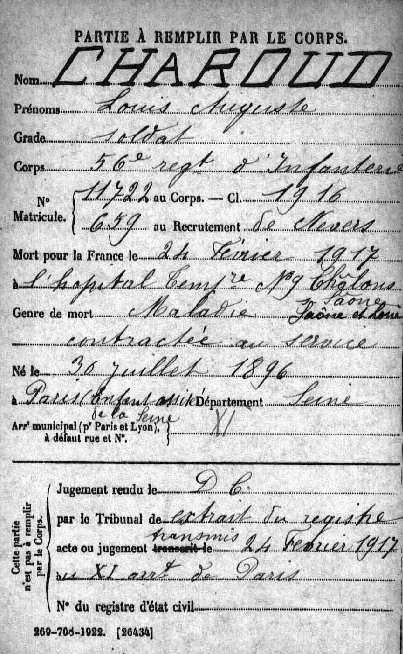 PARTIE À REMPLIR PAR LE CORPS.
Nom CHAROUD
Prénoms Louis Auguste
Grade soldat
Corps 56e regt d'Infanterie
N° Matricule. 11722 au Corps. — Cl. 1916
659 au Recrutement de Nevers
Mort pour la France le 24 Février 1917
à l'hopital Tempre No 9 Châlons
Saône
Genre de mort Maladie Saône et Loire
contractée au service
Né le 30 Juillet 1896
à Paris (Enfant assisté Département Seine
de la Seine
Arrt municipal (pr Paris et Lyon), XI
à défaut rue et N°.
Cette partie n'est pas à remplir par le Corps.
Jugement rendu le D C
par le Tribunal de extrait du registre
transmis
acte ou jugement transcrit le 24 Février 1917
au XI arrt de Paris
N° du registre d'état civil
269-708-1922. [26434]